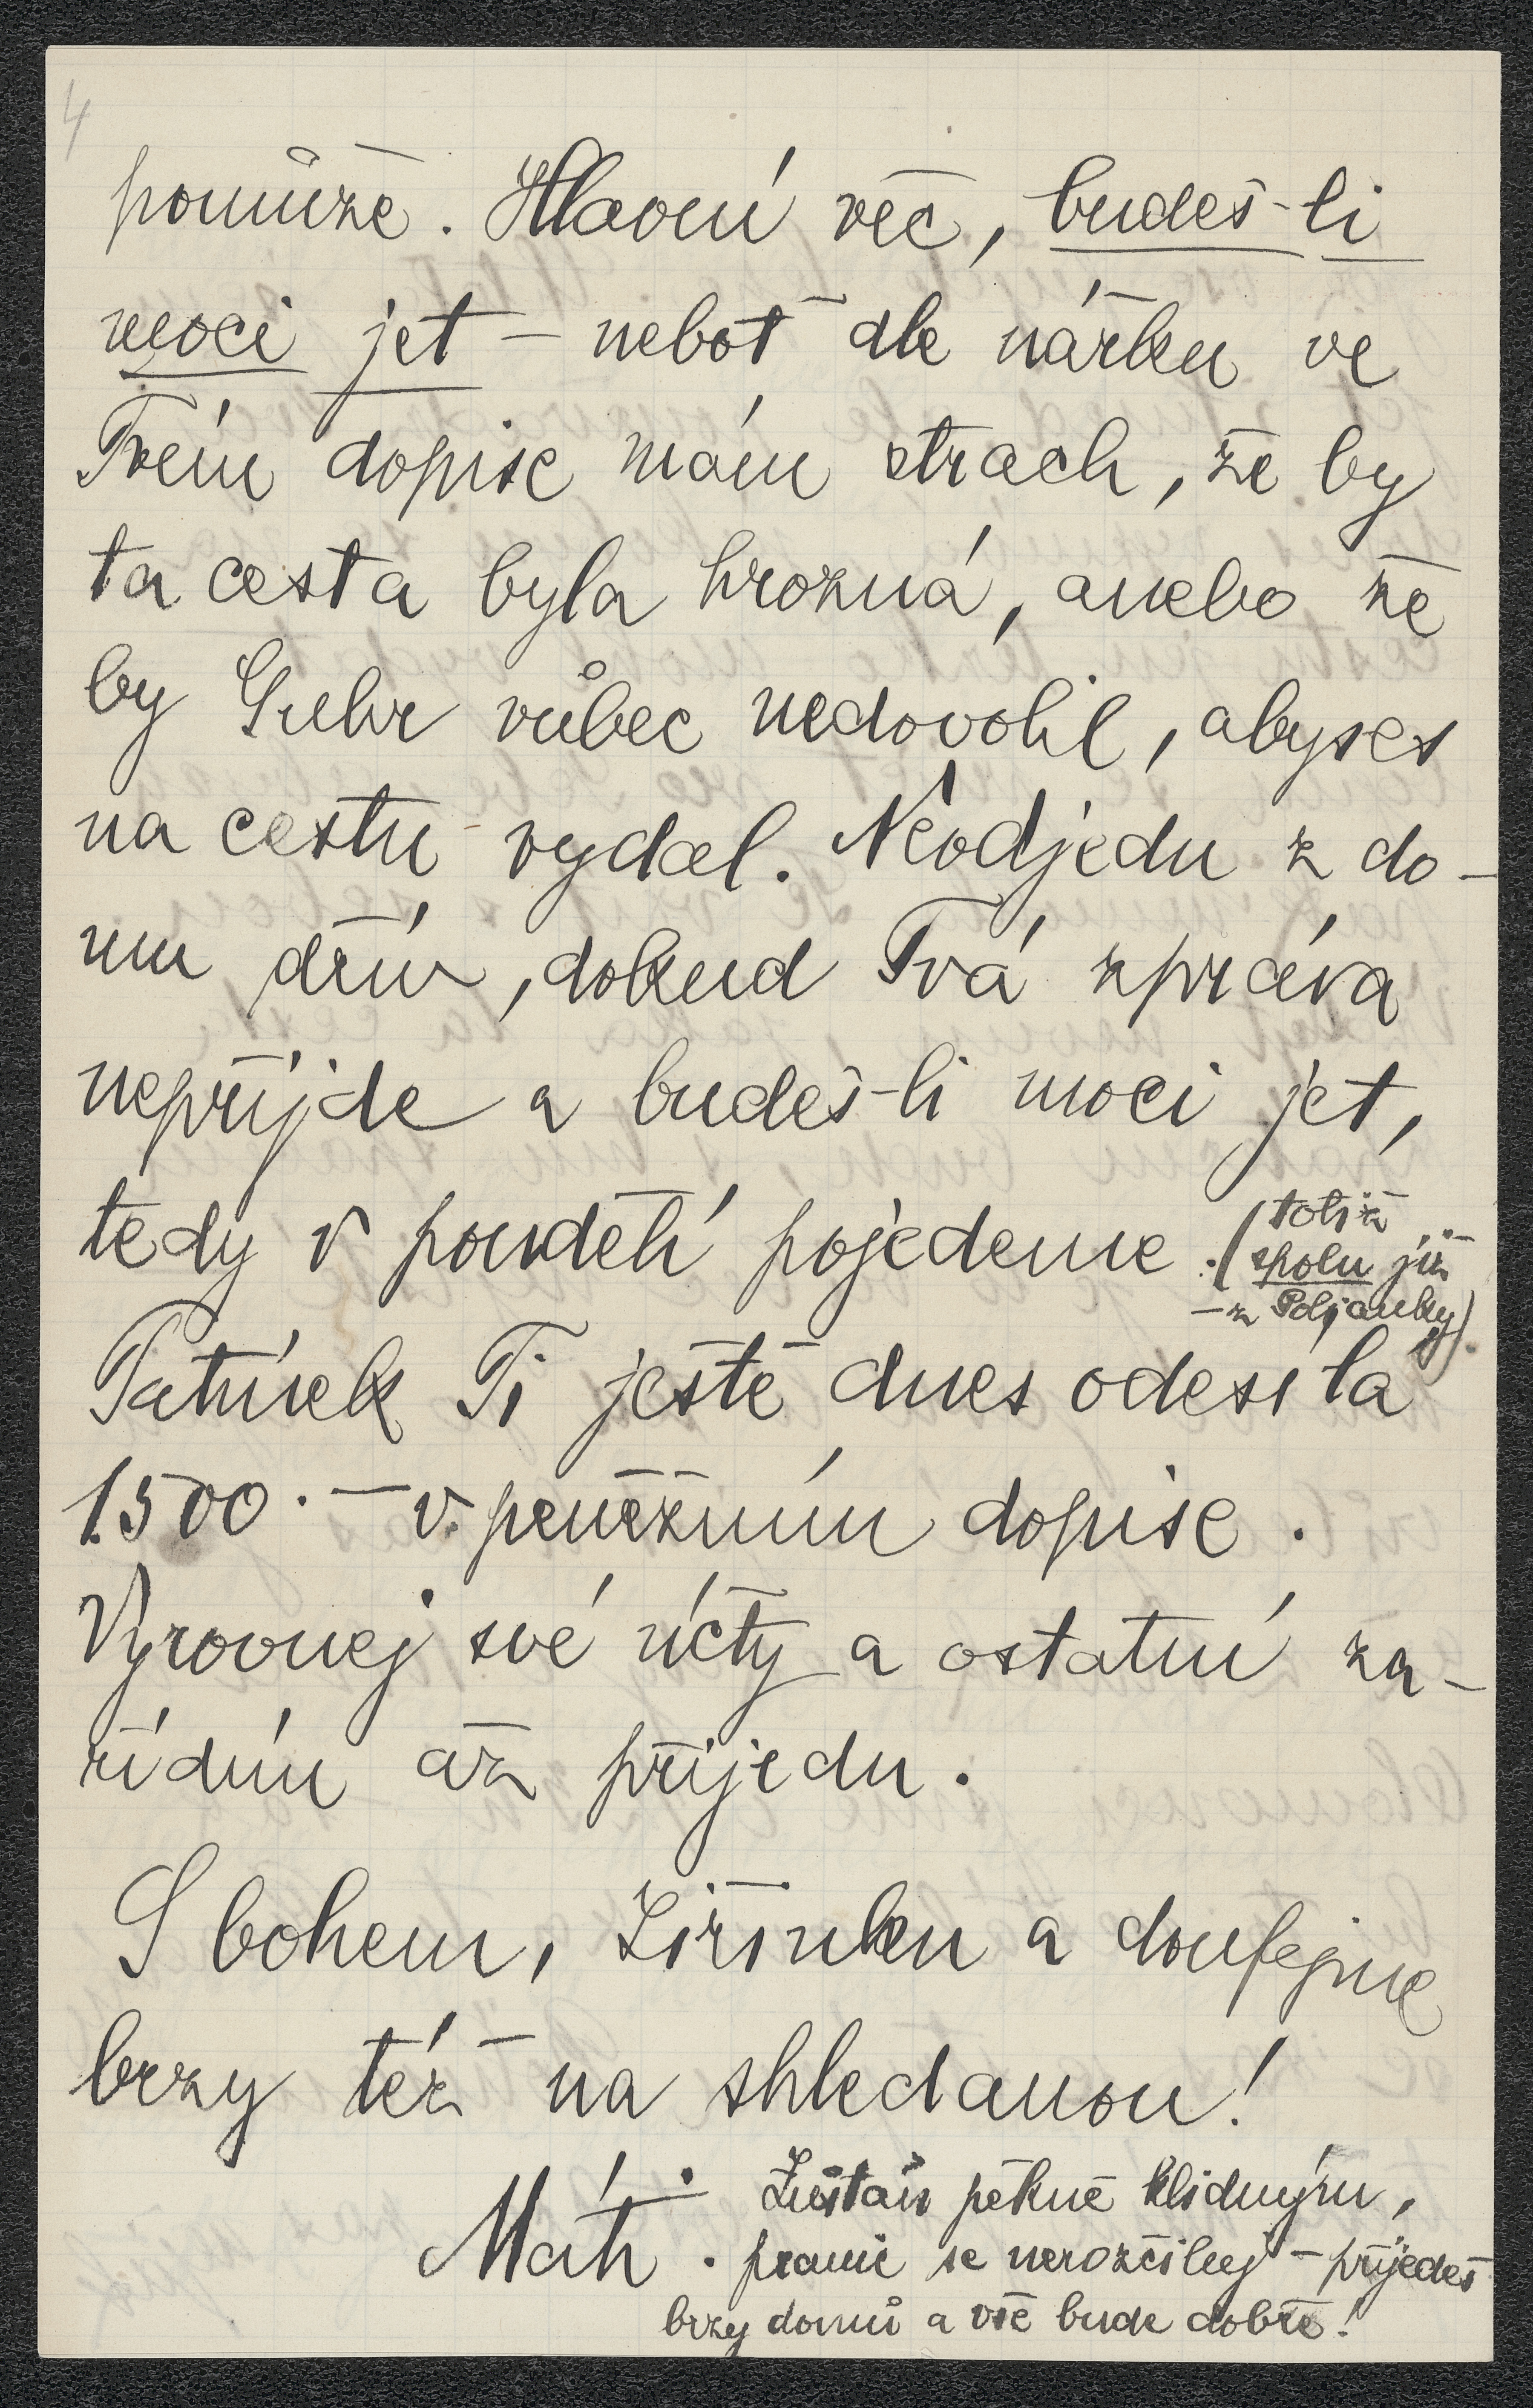 4
pomůže. Hlavní věc, budeš-li
moci jet – neboť dle nářku ve
Tvém dopise mám strach, že by
ta cesta byla hrozná, anebo že
by Guhr vůbec nedovolil, abyses
na cestu vydal. Neodjedu z do-
mu dřív, dokud Tvá zpráva
nepřijde a budeš-li moci jet,
tedy v pondělí pojedeme. (totiž
spolu již
– z Polianky).
Tatínek Ti ještě dnes odesílá
1.500.— v peněžním dopise.
Vyrovnej své účty a ostatní za-
řídím až přijedu.
S bohem, Jiřinku a doufejme
brzy též na shledanou!
Máti. Zůstaň pěkně klidným,
pranic se nerozčiluj – přijedeš
brzy domů a vše bude dobře!